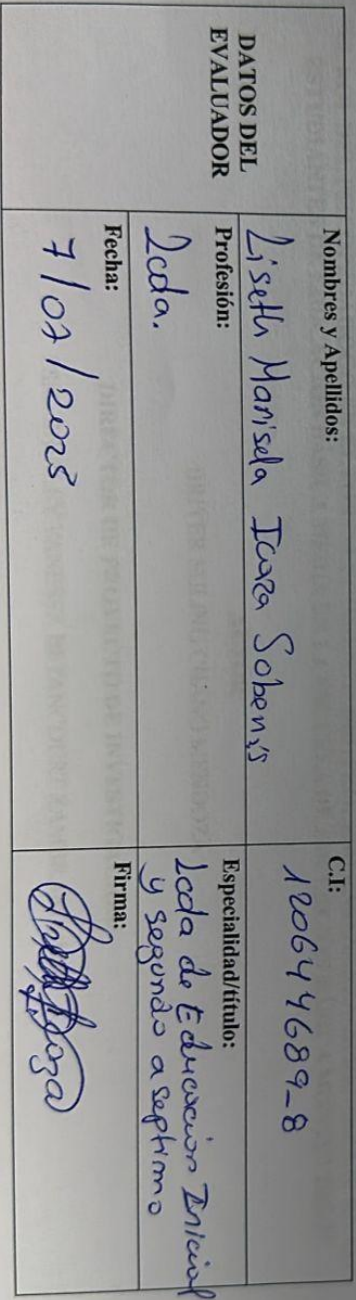 DATOS DEL
EVALUADOR
Nombres y Apellidos:
Liseth Marisela Icaza Sobenis
C.I:
120644689-8
Profesión:
Lcda.
Especialidad/título:
Lcda de Educacion Inicial
y segundo a septimo
Fecha:
7/07/2025
Firma: